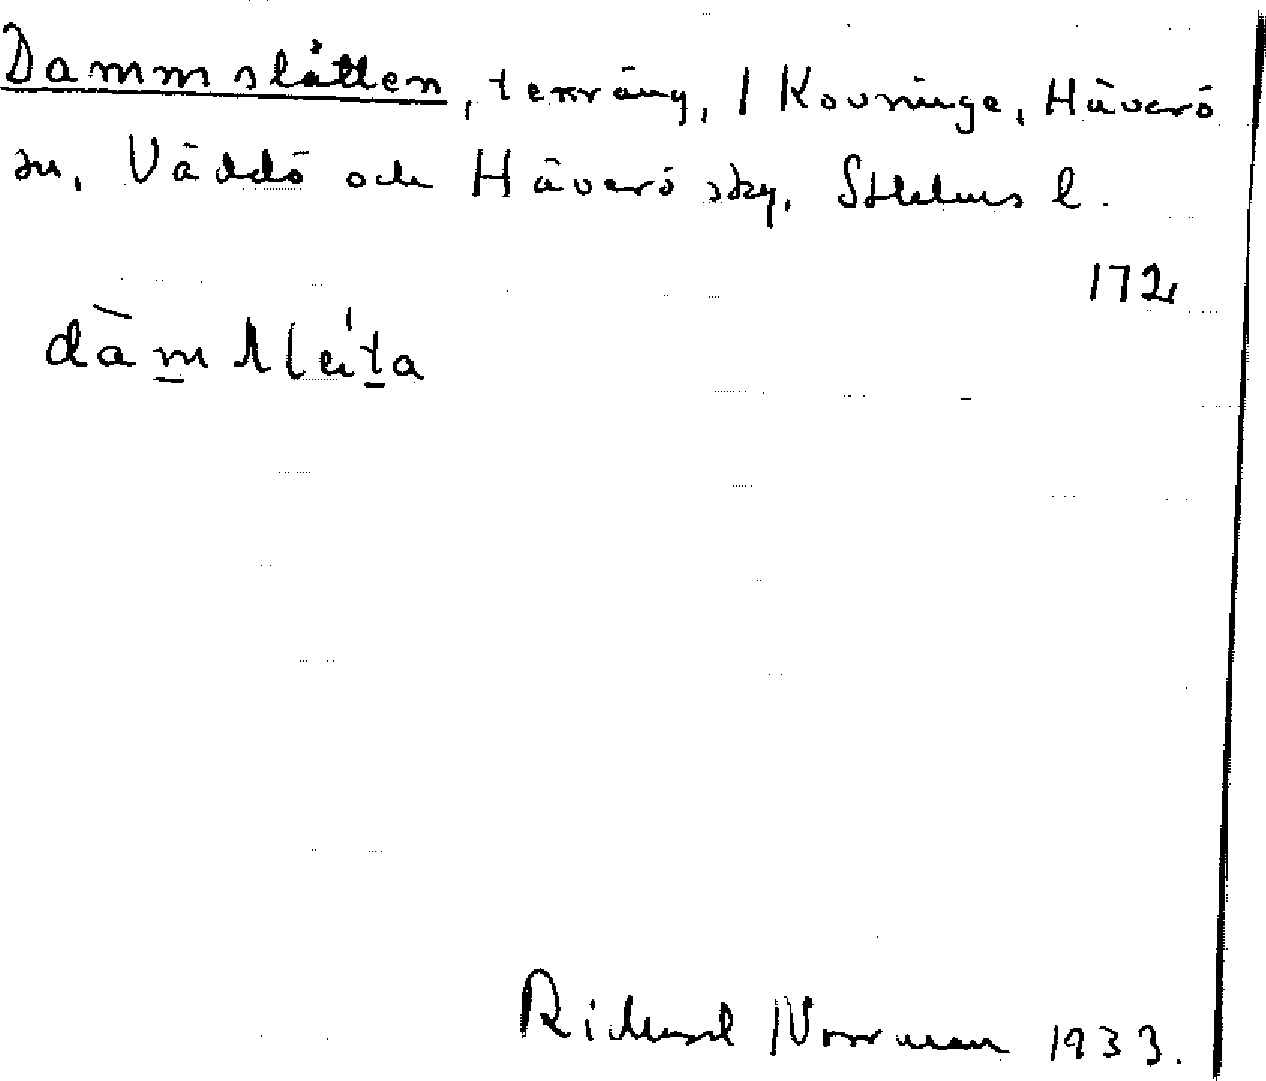 Dammslåtten, terräng, 1 Kovninge, Häverö
sn, Väddö och Häverö skg, Sthlms l.
172
Richard Norrman 1933.